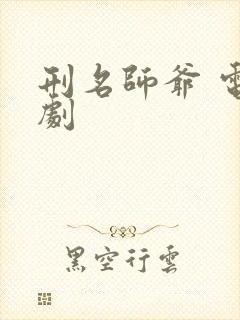 刑名師爺 電
劇
黑空行雲